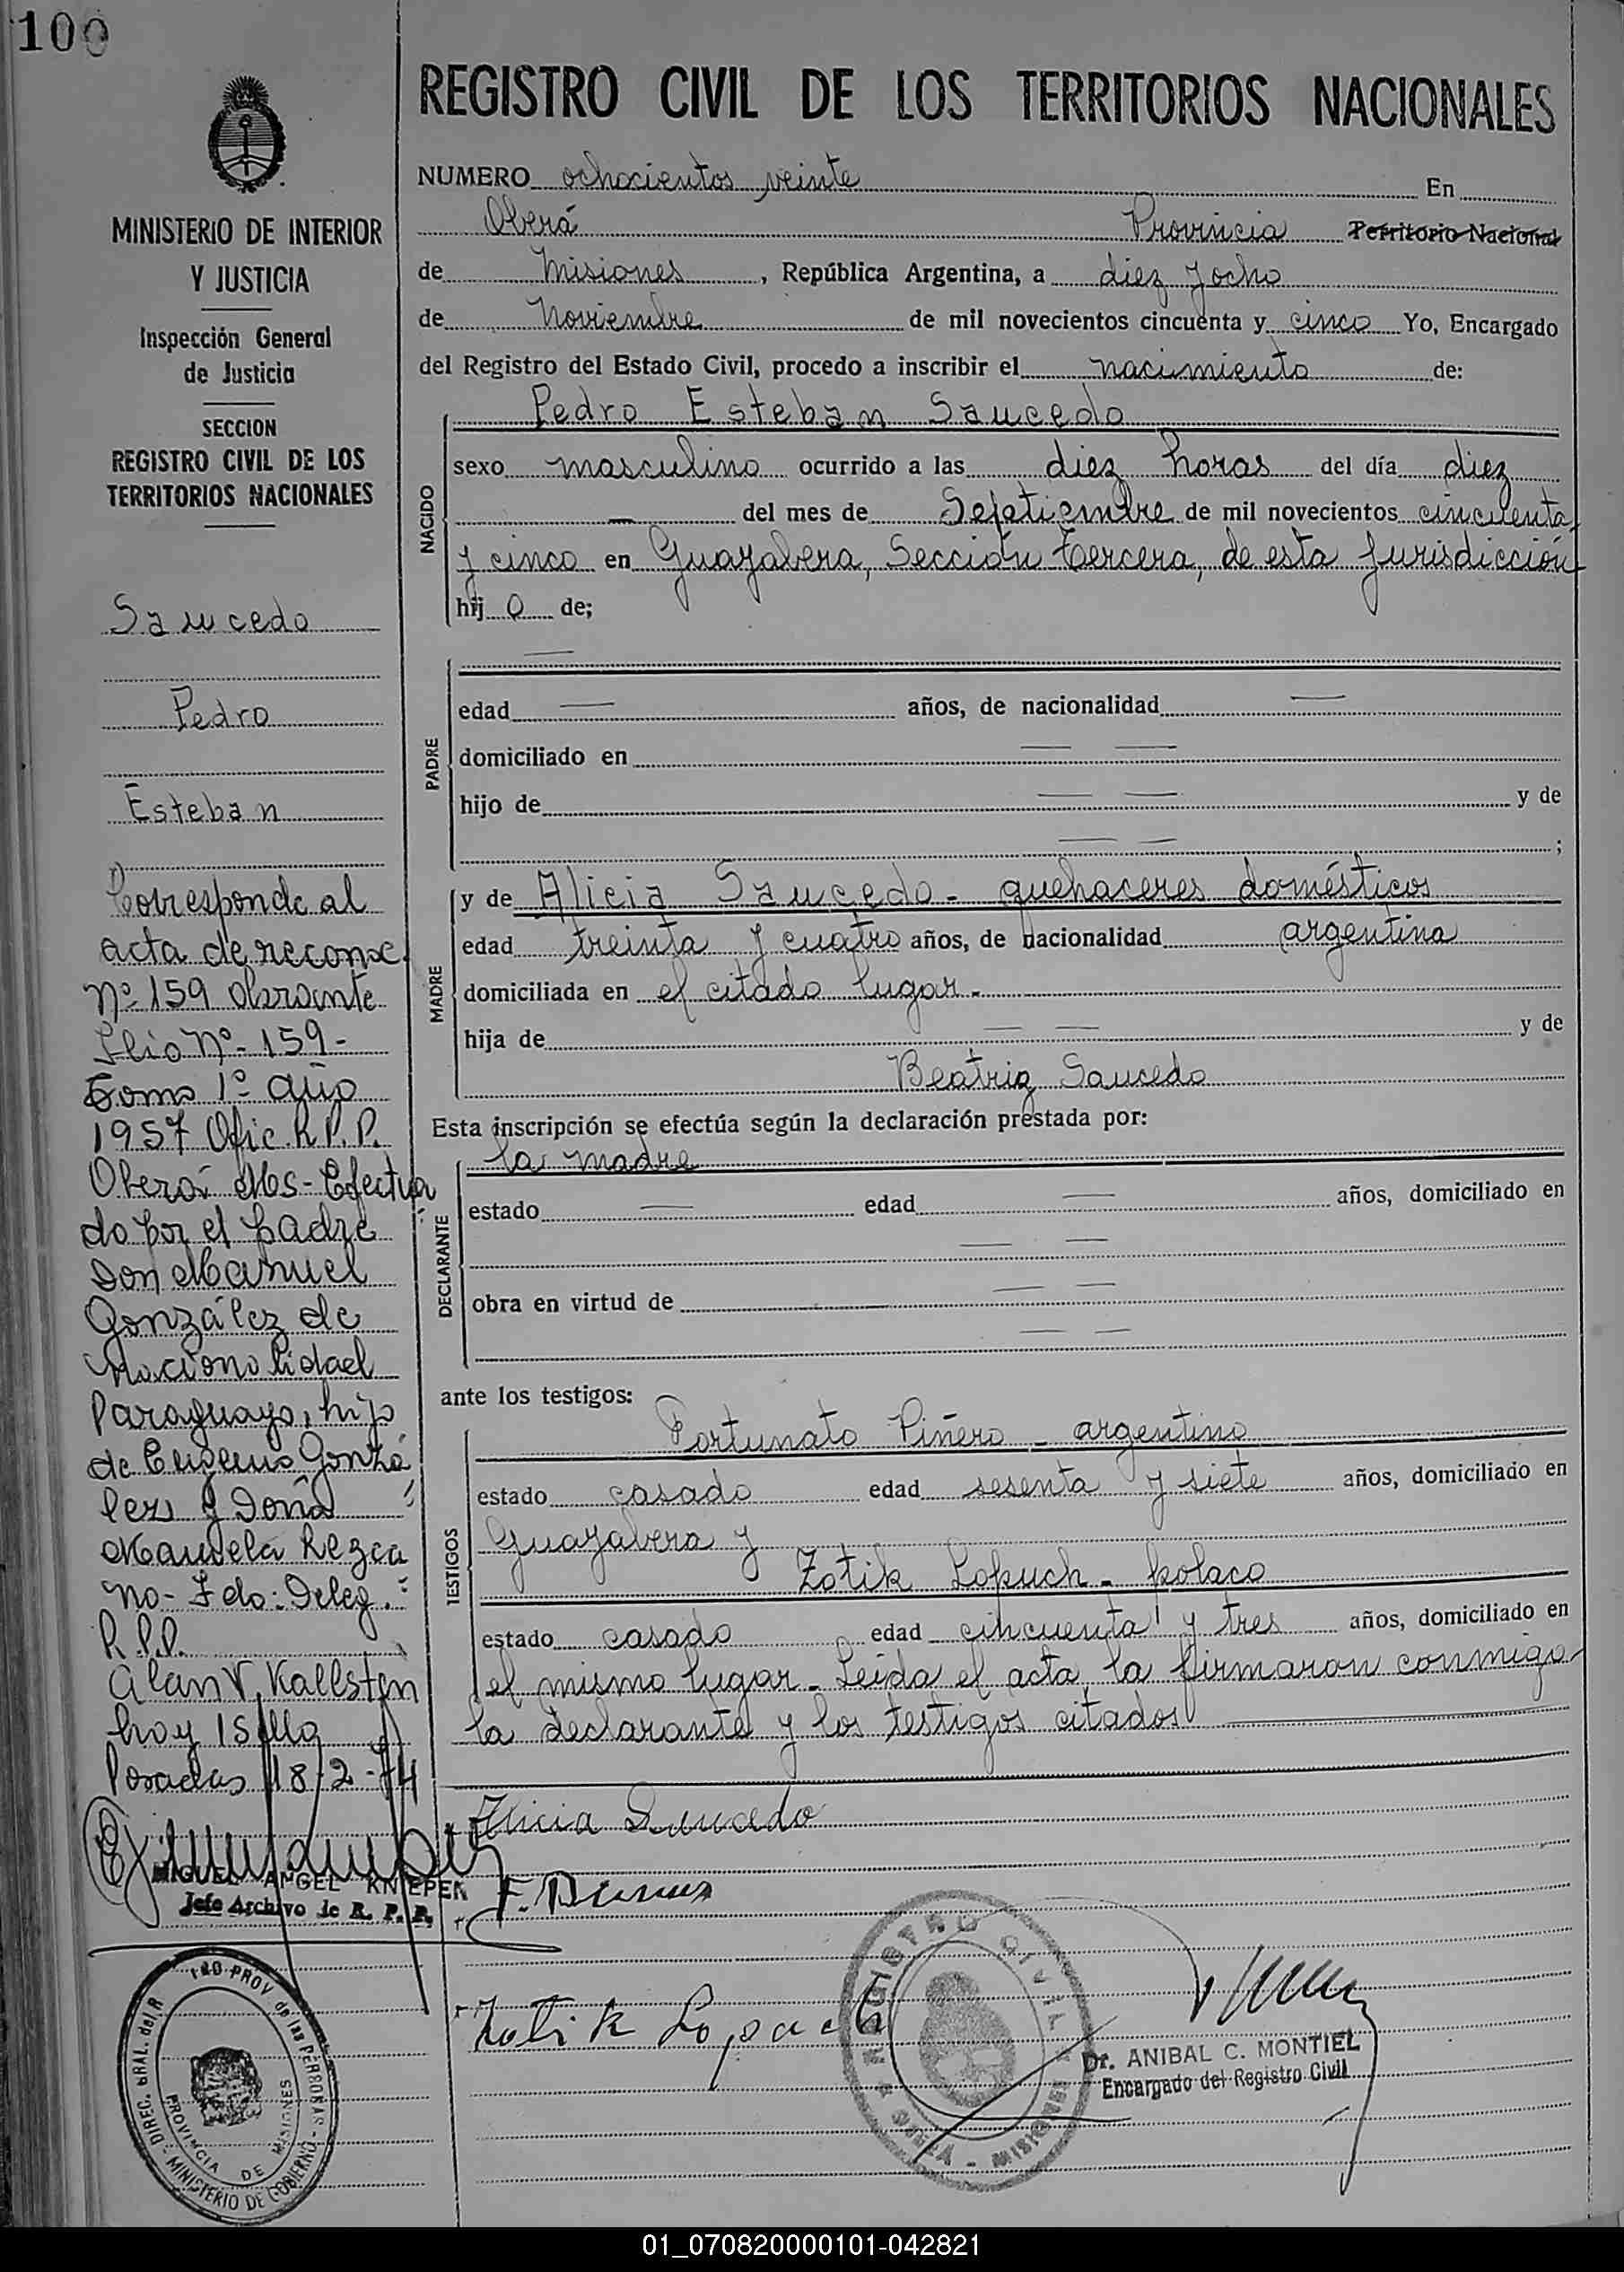 100
REGISTRO CIVIL DE LOS TERRITORIOS NACIONALES
MINISTERIO DE INTERIOR
Y JUSTICIA
Inspección General
de Justicia
SECCION
REGISTRO CIVIL DE LOS
TERRITORIOS NACIONALES
Saucedo
Pedro
Esteban
Corresponde al
acta de reconoc
Nº 159 obrante
Nº 159-
Tomo 1º año
1957 Ofic. R.P.P.
Oberá Ms- Efectua
do por el padre
Don Manuel
González de
Nacionalidad
Paraguayo, hijo
de Eugenio Gonzá
lez y Doña
Manuela Lezca
no- Fdo: Deleg.
R.P.P.
Alan V. Kallsten
hoy
Posadas 18-2-74
MIGUEL ANGEL KNIEPER
Jefe Archivo de R. P. P.
DIREC. GRAL. del R PROV de las PERSONAS - MINISTERIO DE GOBIERNO
PROVINCIA DE MISIONES
NUMERO ochocientos veinte En
Oberá Provincia Territorio Nacional
de Misiones, República Argentina, a diez y ocho
de Noviembre de mil novecientos cincuenta y cinco Yo, Encargado
del Registro del Estado Civil, procedo a inscribir el nacimiento de:
NACIDO
Pedro Esteban Saucedo
sexo masculino ocurrido a las diez horas del día diez
— del mes de Sepetiembre de mil novecientos cincuenta
y cinco en Guayabera, Sección tercera, de esta Jurisdicción
hij o de;
PADRE
—
edad — años, de nacionalidad —
domiciliado en — —
hijo de — — y de
— — ;
MADRE
y de Alicia Saucedo - quehaceres domésticos
edad treinta y cuatro años, de nacionalidad argentina
domiciliada en el citado lugar.-
hija de — — y de
Beatriz Saucedo
Esta inscripción se efectúa según la declaración prestada por:
DECLARANTE
la madre
estado — edad — años, domiciliado en
— —
obra en virtud de — —
— —
ante los testigos:
TESTIGOS
Fortunato Piñero - argentino
estado casado edad sesenta y siete años, domiciliado en
Guayabera y
Zotik Lopuch - polaco
estado casado edad cincuenta y tres años, domiciliado en
el mismo lugar. Leída el acta, la firmaron conmigo
la declarante y los testigos citados
Alicia Saucedo
Zotik Lopuch
REGISTRO CIVIL
OBERA - MISIONES
Dr. ANIBAL C. MONTIEL
Encargado del Registro Civil
01_070820000101-042821